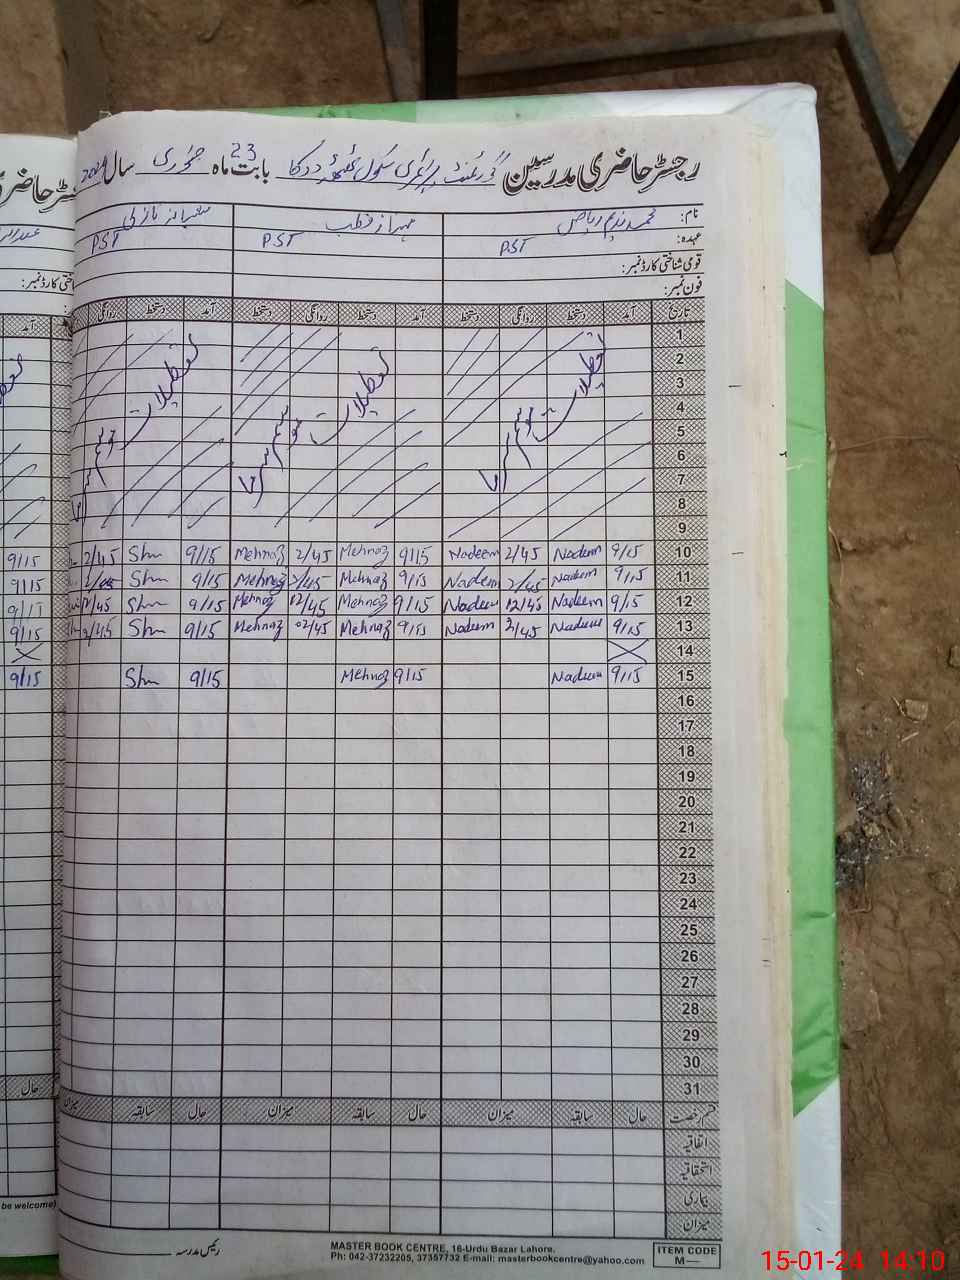 رجسٹر حاضری مدرسین گورنمنٹ پرائمری سکول بابت ماہ 23 جنوری سال 2024
نام: محمد ندیم ریاض
عہدہ: PST PST PST
قومی شناختی کارڈ نمبر:
فون نمبر:
تاریخ آمد دستخط روانگی دستخط آمد دستخط روانگی دستخط آمد دستخط روانگی
1
2
3
4
5
6
7
8
9
تعطیلات موسم سرما تعطیلات موسم سرما تعطیلات موسم سرما
10 9/15 Nadeem 2/45 Nadeem 9/15 Mehnaz 2/45 Mehnaz 9/15 Shn 2/45 9/15
11 9/15 Nadeem 2/45 Nadeem 9/15 Mehnaz 2/45 Mehnaz 9/15 Shn 2/45 9/15
12 9/15 Nadeem 12/45 Nadeem 9/15 Mehnaz 12/45 Mehnaz 9/15 Shn 12/45 9/15
13 9/15 Nadeem 2/45 Nadeem 9/15 Mehnaz 02/45 Mehnaz 9/15 Shn 2/45 9/15
14
15 9/15 Nadeem 9/15 Mehnaz 9/15 Shn 9/15
16
17
18
19
20
21
22
23
24
25
26
27
28
29
30
31
قسم رخصت حال سابقہ میزان حال سابقہ میزان حال سابقہ میزان حال
اتفاقیہ
استحقاقیہ
بیماری
میزان
رئیس مدرسہ
be welcome)
MASTER BOOK CENTRE, 16-Urdu Bazar Lahore.
Ph: 042-37232205, 37357732 E-mail: masterbookcentre@yahoo.com
ITEM CODE
M—
15-01-24 14:10